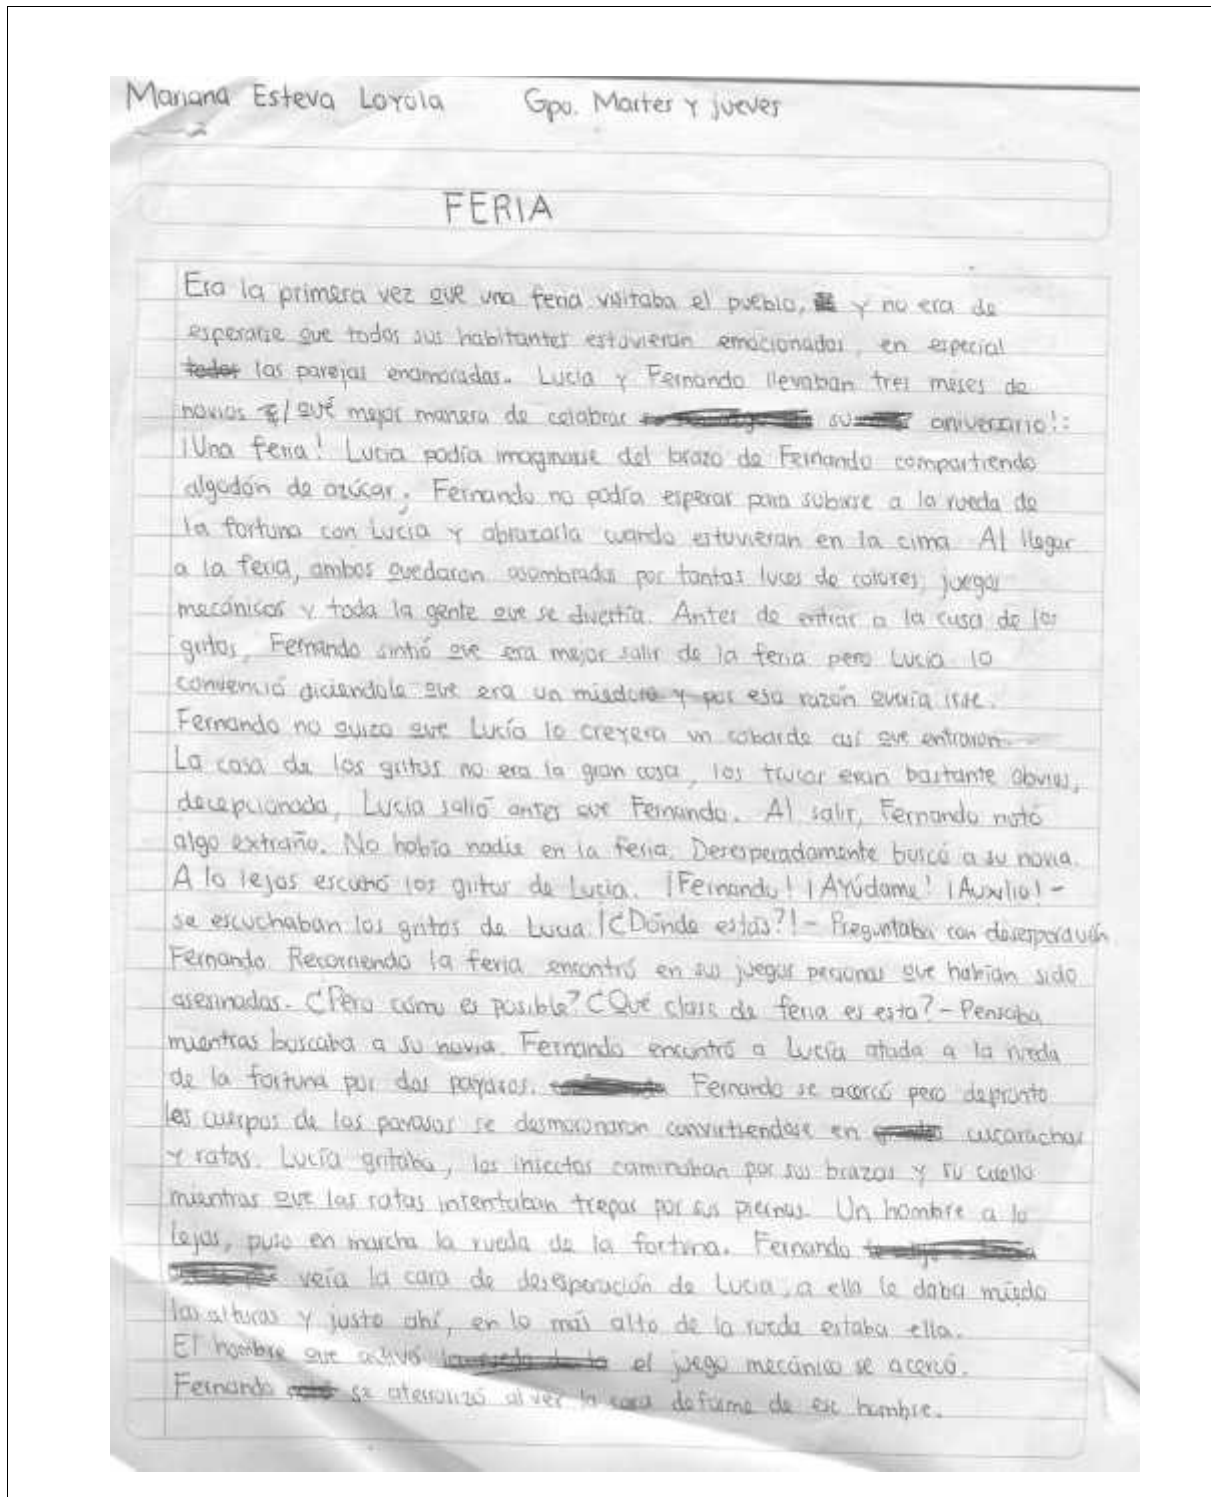 Mariana Esteva Loyola Gpo. Martes y jueves
FERIA
Era la primera vez que una feria visitaba el pueblo, y no era de
esperarse que todos sus habitantes estuvieran emocionados, en especial
todos las parejas enamoradas. Lucía y Fernando llevaban tres meses de
novios ¡qué mejor manera de celabrar su aniversario!:
¡Una feria! Lucía podía imaginarse del brazo de Fernando compartiendo
algodón de azúcar; Fernando no podía esperar para subirse a la rueda de
la fortuna con Lucía y abrazarla cuando estuvieran en la cima. Al llegar
a la feria, ambos quedaron asombrados por tantas luces de colores, juegos
mecánicos y toda la gente que se divertía. Antes de entrar a la casa de los
gritos, Fernando sintió que era mejor salir de la feria pero Lucía lo
convenció diciendole que era un miedoso y por esa razón quería irse.
Fernando no quizo que Lucía lo creyera un cobarde así que entraron.
La casa de los gritos no era la gran cosa, los trucos eran bastante obvios,
decepcionada, Lucía salió antes que Fernando. Al salir, Fernando notó
algo extraño. No había nadie en la feria. Desesperadamente buscó a su novia.
A lo lejos escuchó los gritos de Lucía. ¡Fernando! ¡Ayúdame! ¡Auxilio! -
se escuchaban los gritos de Lucía. ¡¿Dónde estás?! - Preguntaba con desesperación
Fernando. Recorriendo la feria encontró en sus juegos personas que habían sido
asesinadas. ¿Pero cómo es posible? ¿Qué clase de feria es esta? - Pensaba
mientras buscaba a su novia. Fernando encontró a Lucía atada a la rueda
de la fortuna por dos payasos. Fernando se acercó pero depronto
los cuerpos de los payasos se desmoronaron convirtiendose en cucarachas
y ratas. Lucía gritaba, los insectos caminaban por sus brazos y su cuello
mientras que las ratas intentaban trepar por sus piernas. Un hombre a lo
lejos, puso en marcha la rueda de la fortuna. Fernando
veía la cara de desesperación de Lucía, a ella le daba miedo
las alturas y justo ahí, en lo más alto de la rueda estaba ella.
El hombre que activó la rueda de la el juego mecánico se acercó.
Fernando se aterrorizó al ver la cara deforme de ese hombre.